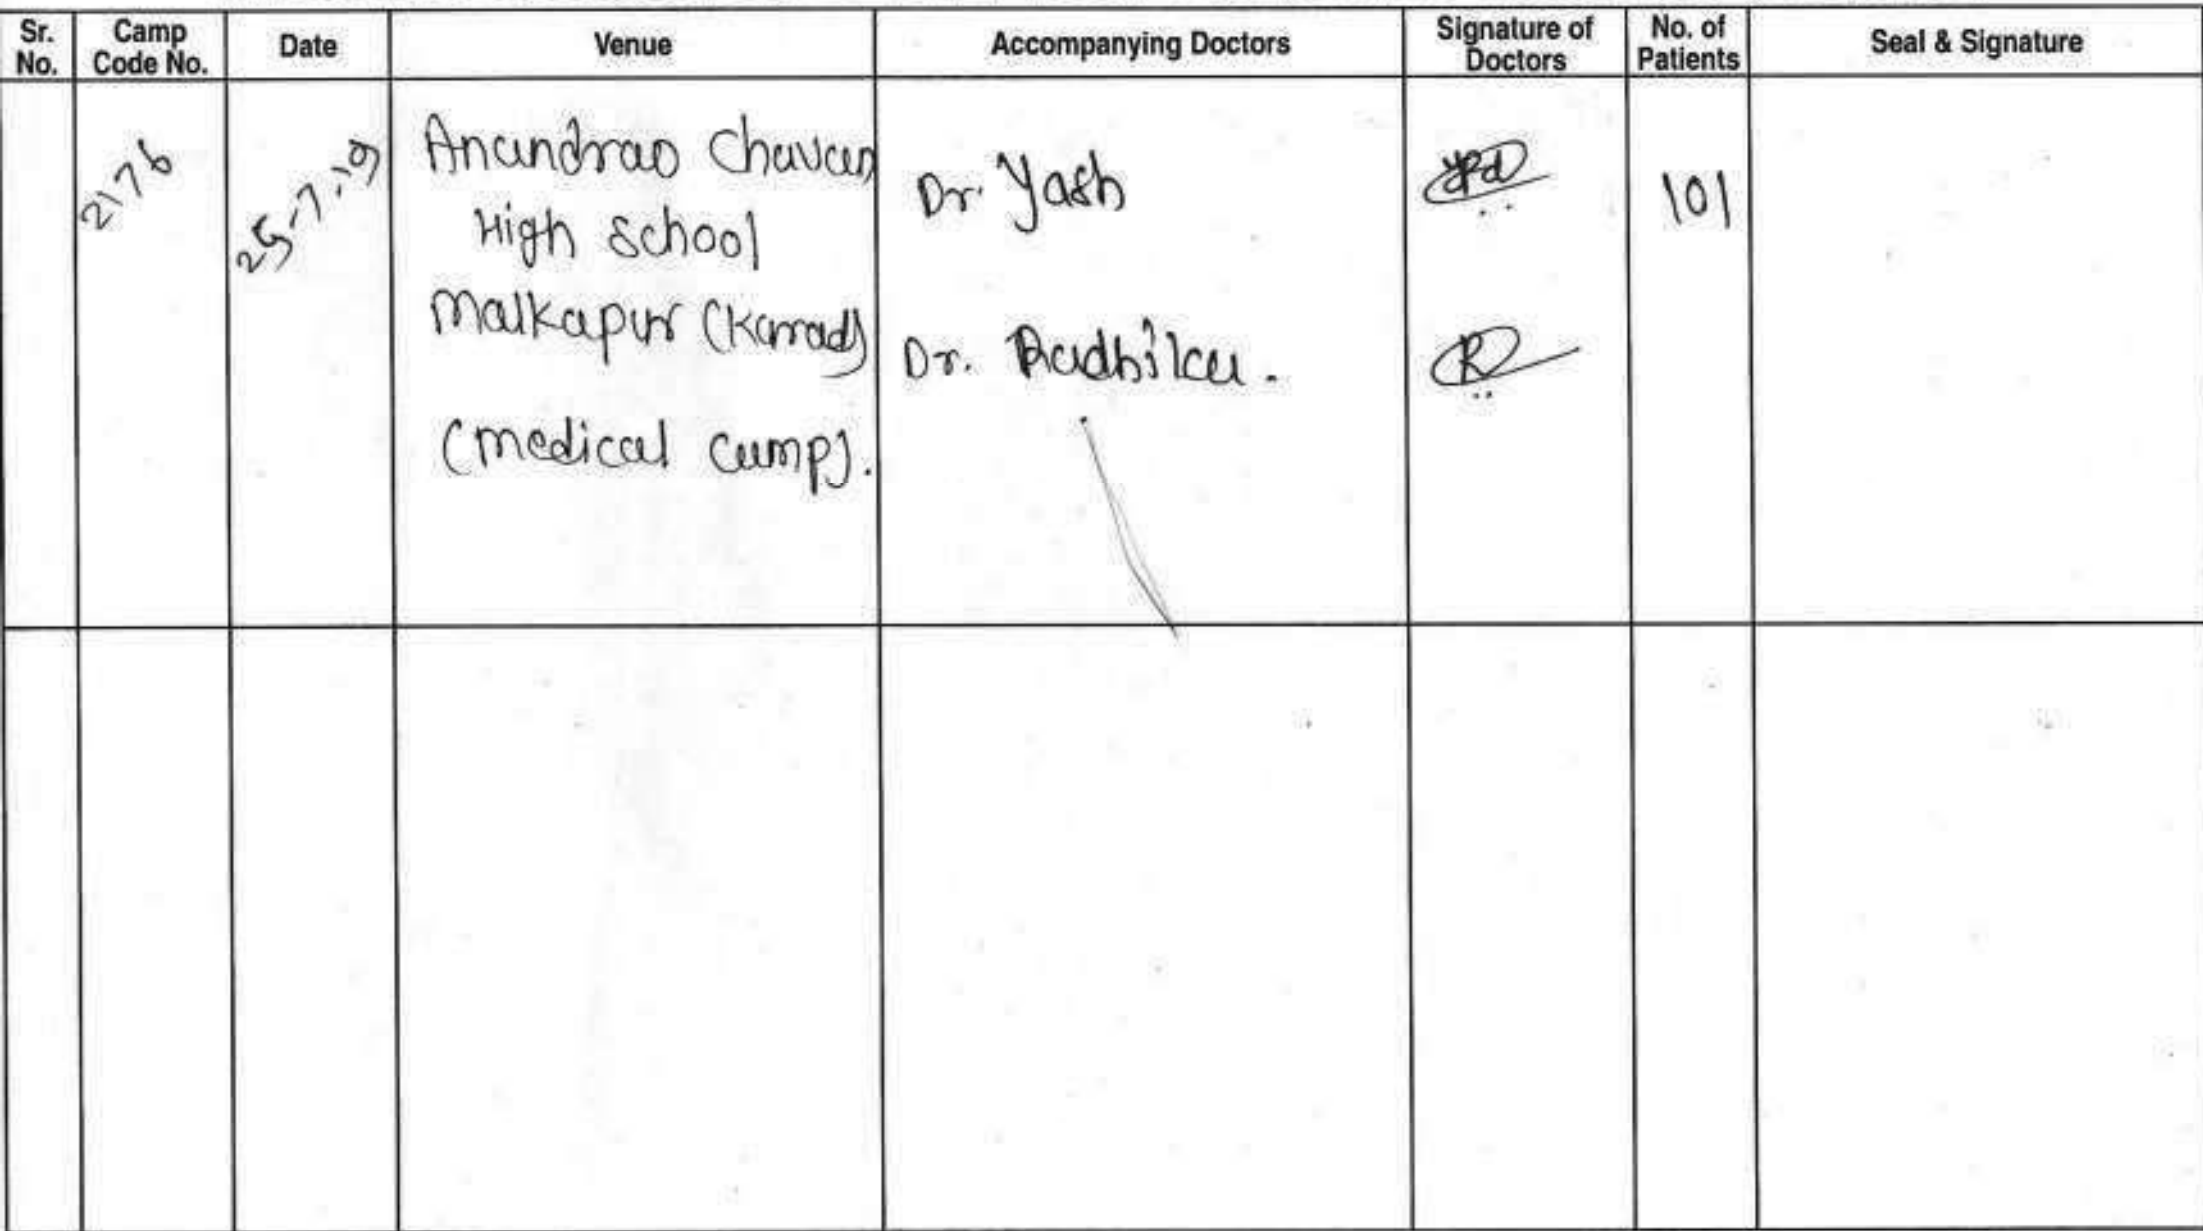 Sr. No. Camp Code No. Date Venue Accompanying Doctors Signature of Doctors No. of Patients Seal & Signature
2176 25-7-19 Anandrao Chavan Dr. Yash 101
High School
Malkapur (Karad) Dr. Radhika.
(medical camp).